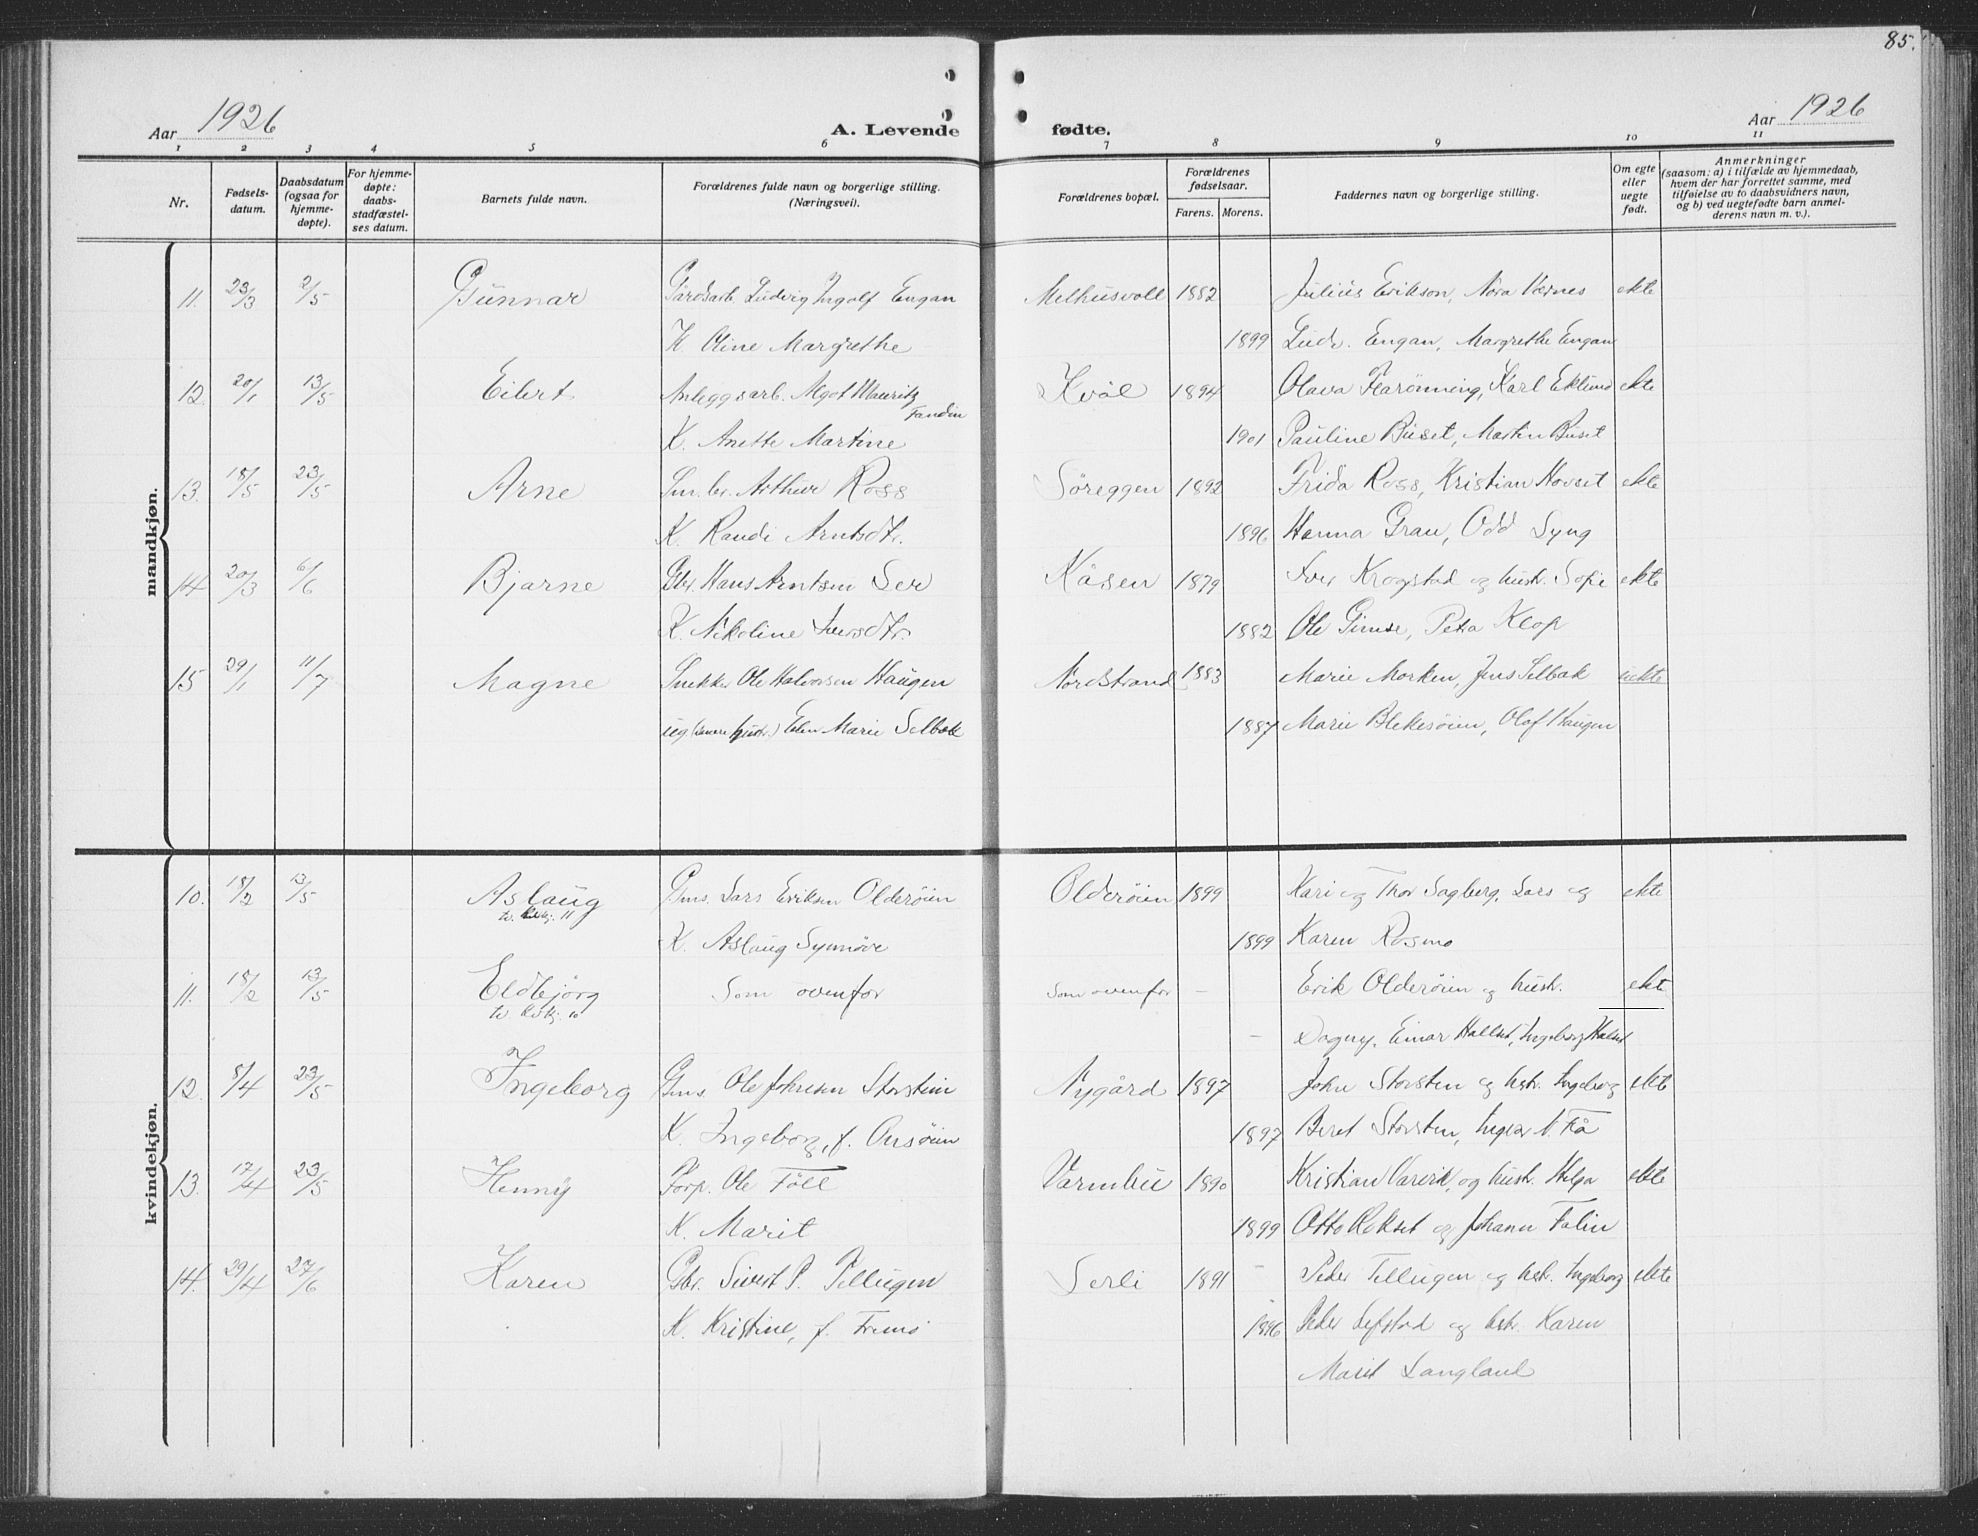 85.
Aar 1926
A. Levende fødte.
Aar 1926
1 2 3 4 5 6 7 8 9 10 11
Nr.
Fødsels-
datum.
Daabsdatum
(ogsaa for
hjemme-
døpte).
For hjemme-
døpte:
daabs-
stadfæstel-
ses datum.
Barnets fulde navn.
Forældrenes fulde navn og borgerlige stilling.
(Næringsvei).
Forældrenes bopæl.
Forældrenes
fødselsaar.
Farens. Morens.
Faddernes navn og borgerlige stilling.
Om egte
eller
uegte
født.
Anmerkninger
(saasom: a) i tilfælde av hjemmedaab,
hvem der har forrettet samme, med
tilføielse av to daabsvidners navn,
og b) ved uegtefødte barn anmel-
derens navn m. v.).
mandkjøn.
11. 23/3 2/5 Gunnar Gårdsarb. Ludvig Ingolf Engan Melhusvoll 1882 Julius Erikson, Nora Værnes ekte
K. Oline Margrethe 1899 Ludv. Engan, Margrethe Engan
12. 20/1 13/5 Eilert Anleggsarb. Agot Mauritz Kvål 1894 Olava Harønning, Karl Eklund ekte
Fandin
K. Anette Martine 1901 Pauline Buset, Martin Buset
13. 18/5 23/5 Arne Sm.br. Arthur Ross Søreggen 1892 Frida Ross, Kristian Hovset ekte
K. Randi Arntsdtr. 1896 Hanna Grau, Odd Syng
14 20/3 6/6 Bjarne Gbr. Hans Arntsen Ler Kåsen 1879 Iver Krogstad og hustr. Sofie ekte
K. Nikoline Iversdtr. 1882 Ole Gimse, Petra Klop
15 29/1 11/7 Magne Snekker Ole Halvorsen Haugen Nordstrand 1883 Marie Morken, Jens Selbak uekte
ug (senere hustr.) Elen Marie Selbak 1887 Marie Blekesøien, Olaf Haugen
kvindekjøn.
10. 18/2 13/5 Aslaug Gms. Lars Eriksen Olderøien Olderøien 1899 Kari og Thor Sagberg, Lars og ekte
tv. kvkj. 11
K. Aslaug Synnöve 1899 Karen Rosmo
11. 18/2 13/5 Eldbjörg Som ovenfor Som ovenfor - Erik Olderøien og hustr. ekte
tv. kvkj. 10
- Dagny, Einar Hallset, Ingeborg Halset
12. 8/4 23/5 Ingeborg Gms. Ole Johnsen Storstein Nygård 1897 John Storsten og hstr. Ingeborg ekte
K. Ingeborg, f. Onsøien 1897 Beret Storsten, Ingebr. N. Flå
13. 17/4 23/5 Henny Forp. Ole Föll Varmbu 1890 Kristian Varvik, og hustr. Helga ekte
K. Marit 1899 Otto Rokset og Johann Folin
14. 29/4 27/6 Karen Gbr. Sivert P. Tellugen Serli 1891 - Peder Tellugen og hstr. Ingeborg ekte
K. Kristine, f. Fremo 1896 Peder Lefstad og hstr. Karen
Marit Langland